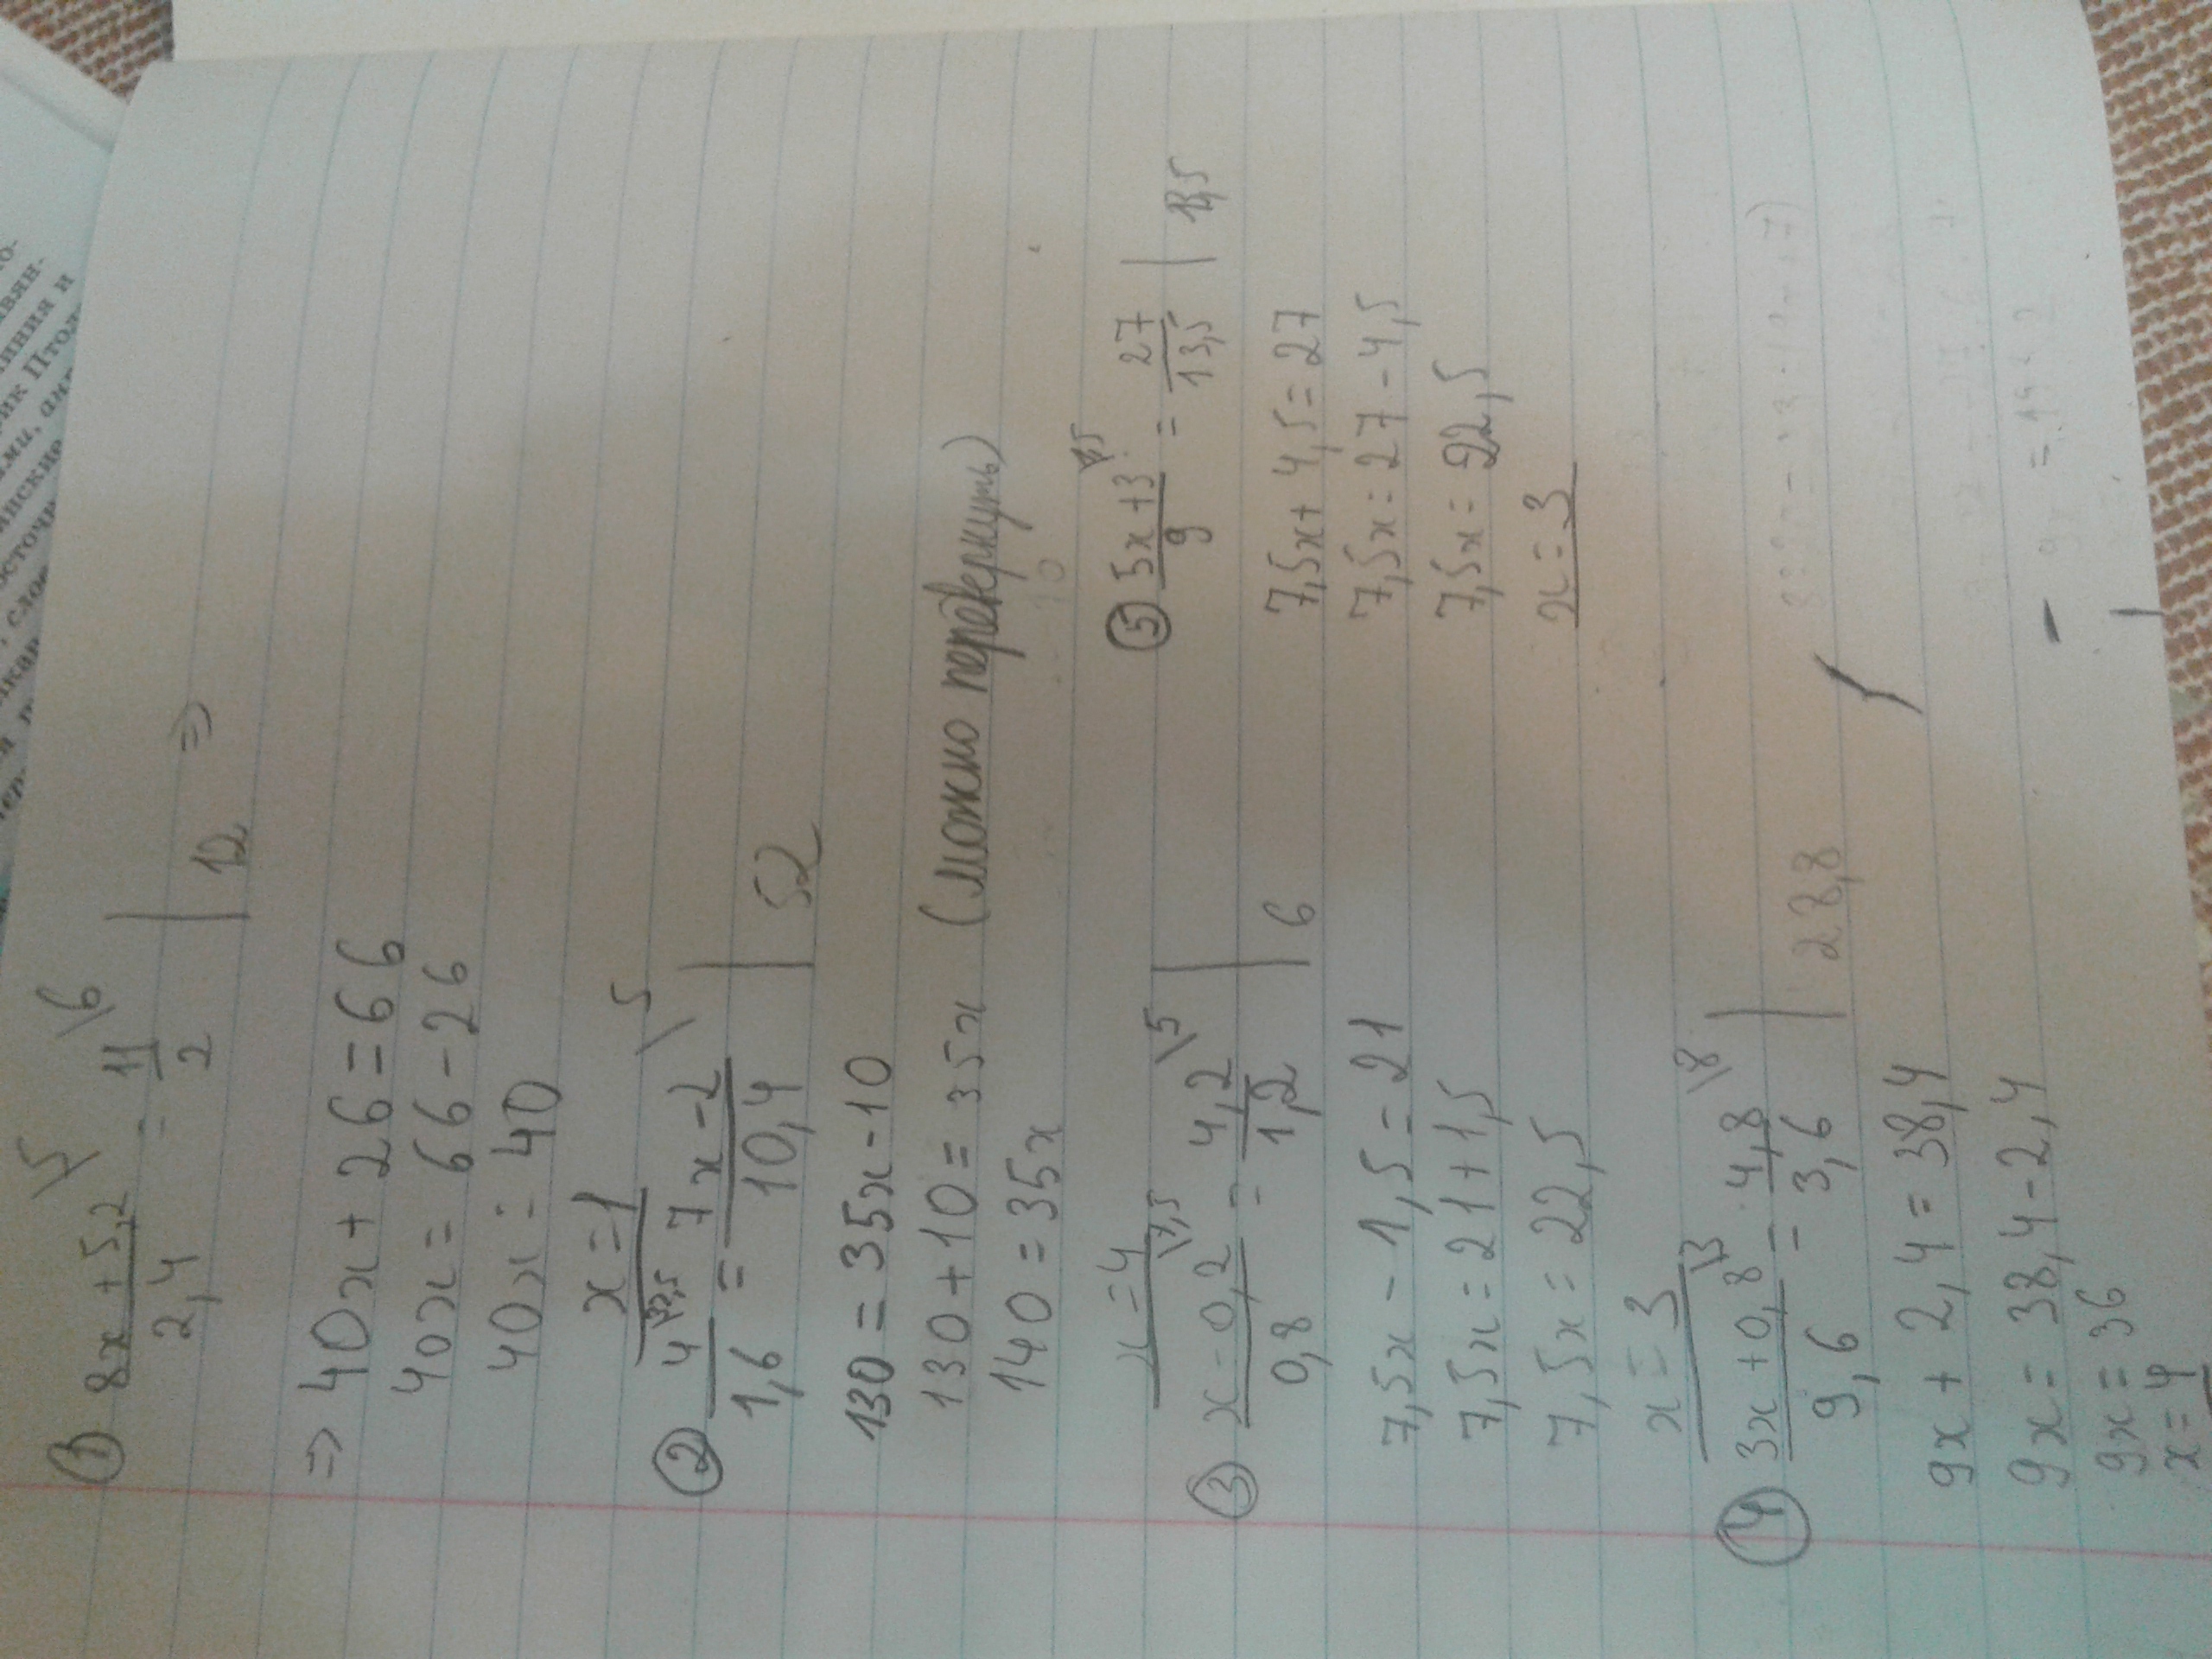 ① (8x+5,2)/2,4 \5 = 11/2 \6 | 12 =>
=> 40x+26=66
40x=66-26
40x=40
x=1
② 4/1,6 \32,5 = (7x-2)/10,4 \5 | 52
130=35x-10
130+10=35x (можно перевернуть)
140=35x
x=4
③ (x-0,2)/0,8 \7,5 = 4,2/1,2 \5 | 6
7,5x-1,5=21
7,5x=21+1,5
7,5x=22,5
x=3
④ (3x+0,8)/9,6 \3 = 4,8/3,6 \8 | 28,8
9x+2,4=38,4
9x=38,4-2,4
9x=36
x=4
⑤ (5x+3)/9 \1,5 = 27/13,5 | 13,5
7,5x+4,5=27
7,5x=27-4,5
7,5x=22,5
x=3